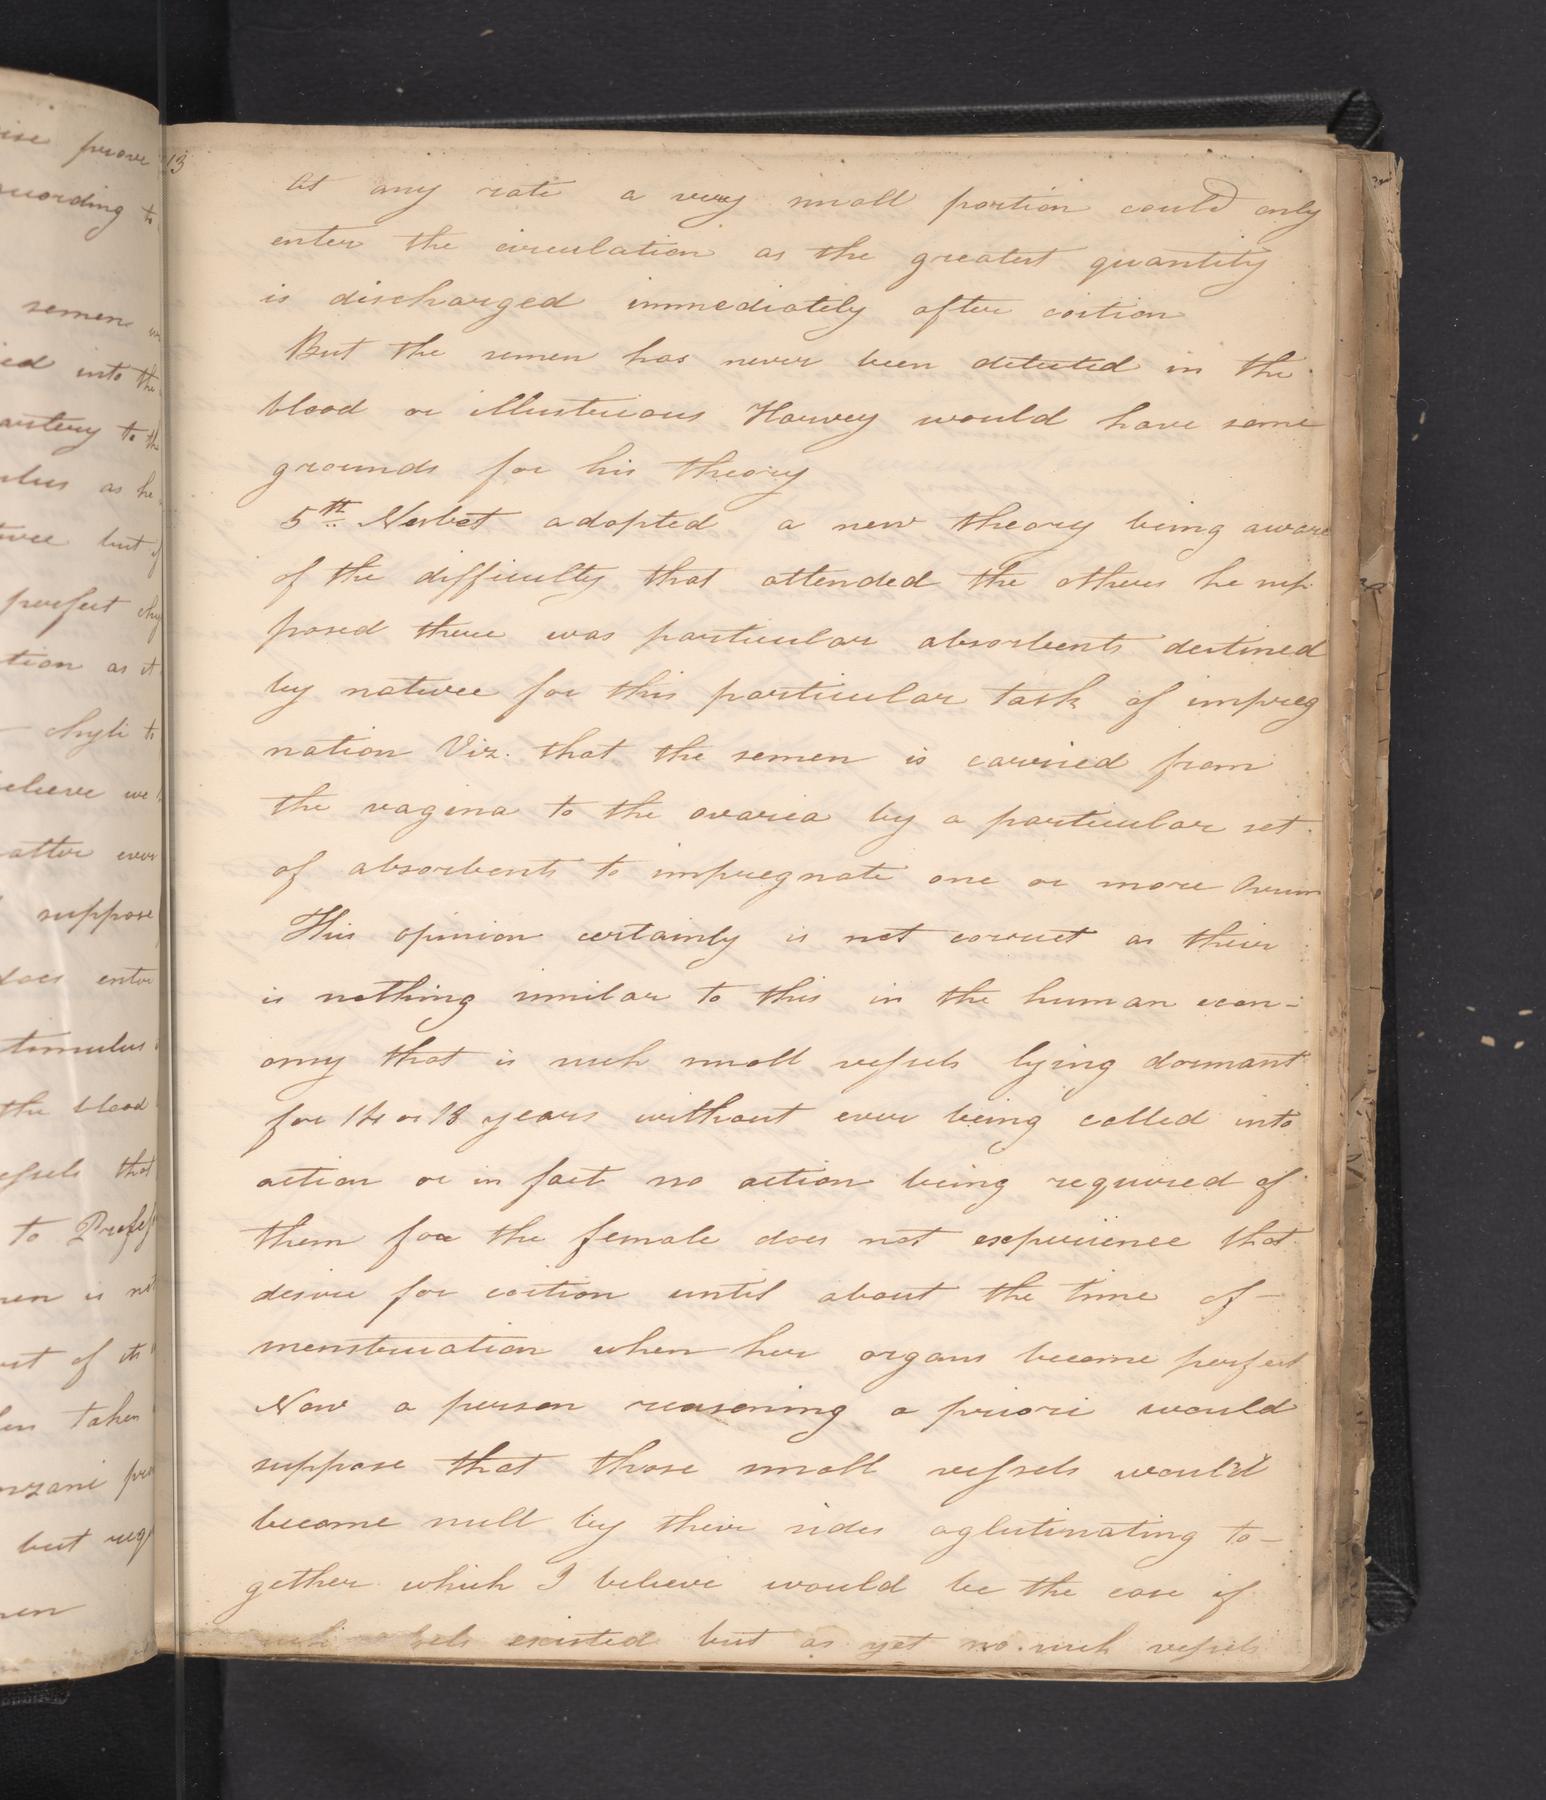 13
At any rate a very small portion could only
enter the circulation as the greatest quantity
is discharged immediately after coition
But the semen has never been detected in the
blood or illustrious Harvey would have some
grounds for his theory
5th Nesbet adopted a new theory being aware
of the difficulty that attended the others he sup-
posed there was particular absorbents destined
by nature for this particular task of impreg
nation Viz. that the semen is carried from
the vagina to the ovaria by a particular set
of absorbents to impregnate one or more Ovum
This opinion certainly is not correct as their
is nothing similar to this in the human econ-
omy that is such small vessels lying dormant
for 14 or 18 years without ever being called into
action or in fact no action being required of
them for the female does not experience that
desire for coition until about the time of -
menstruation when her organs become perfect
Now a person reasoning a priori would
suppose that those small vessels would
become null by their sides aglutinating to-
gether which I believe would be the case if
such vessels existed but as yet no such vessels
prove
according to
semen
into the
artery to the
as he
but if
perfect
tion as it
chyli to
believe we
atter ever
suppose
does enter
stimulus
the blood
that
to
is not
of its
taken
but